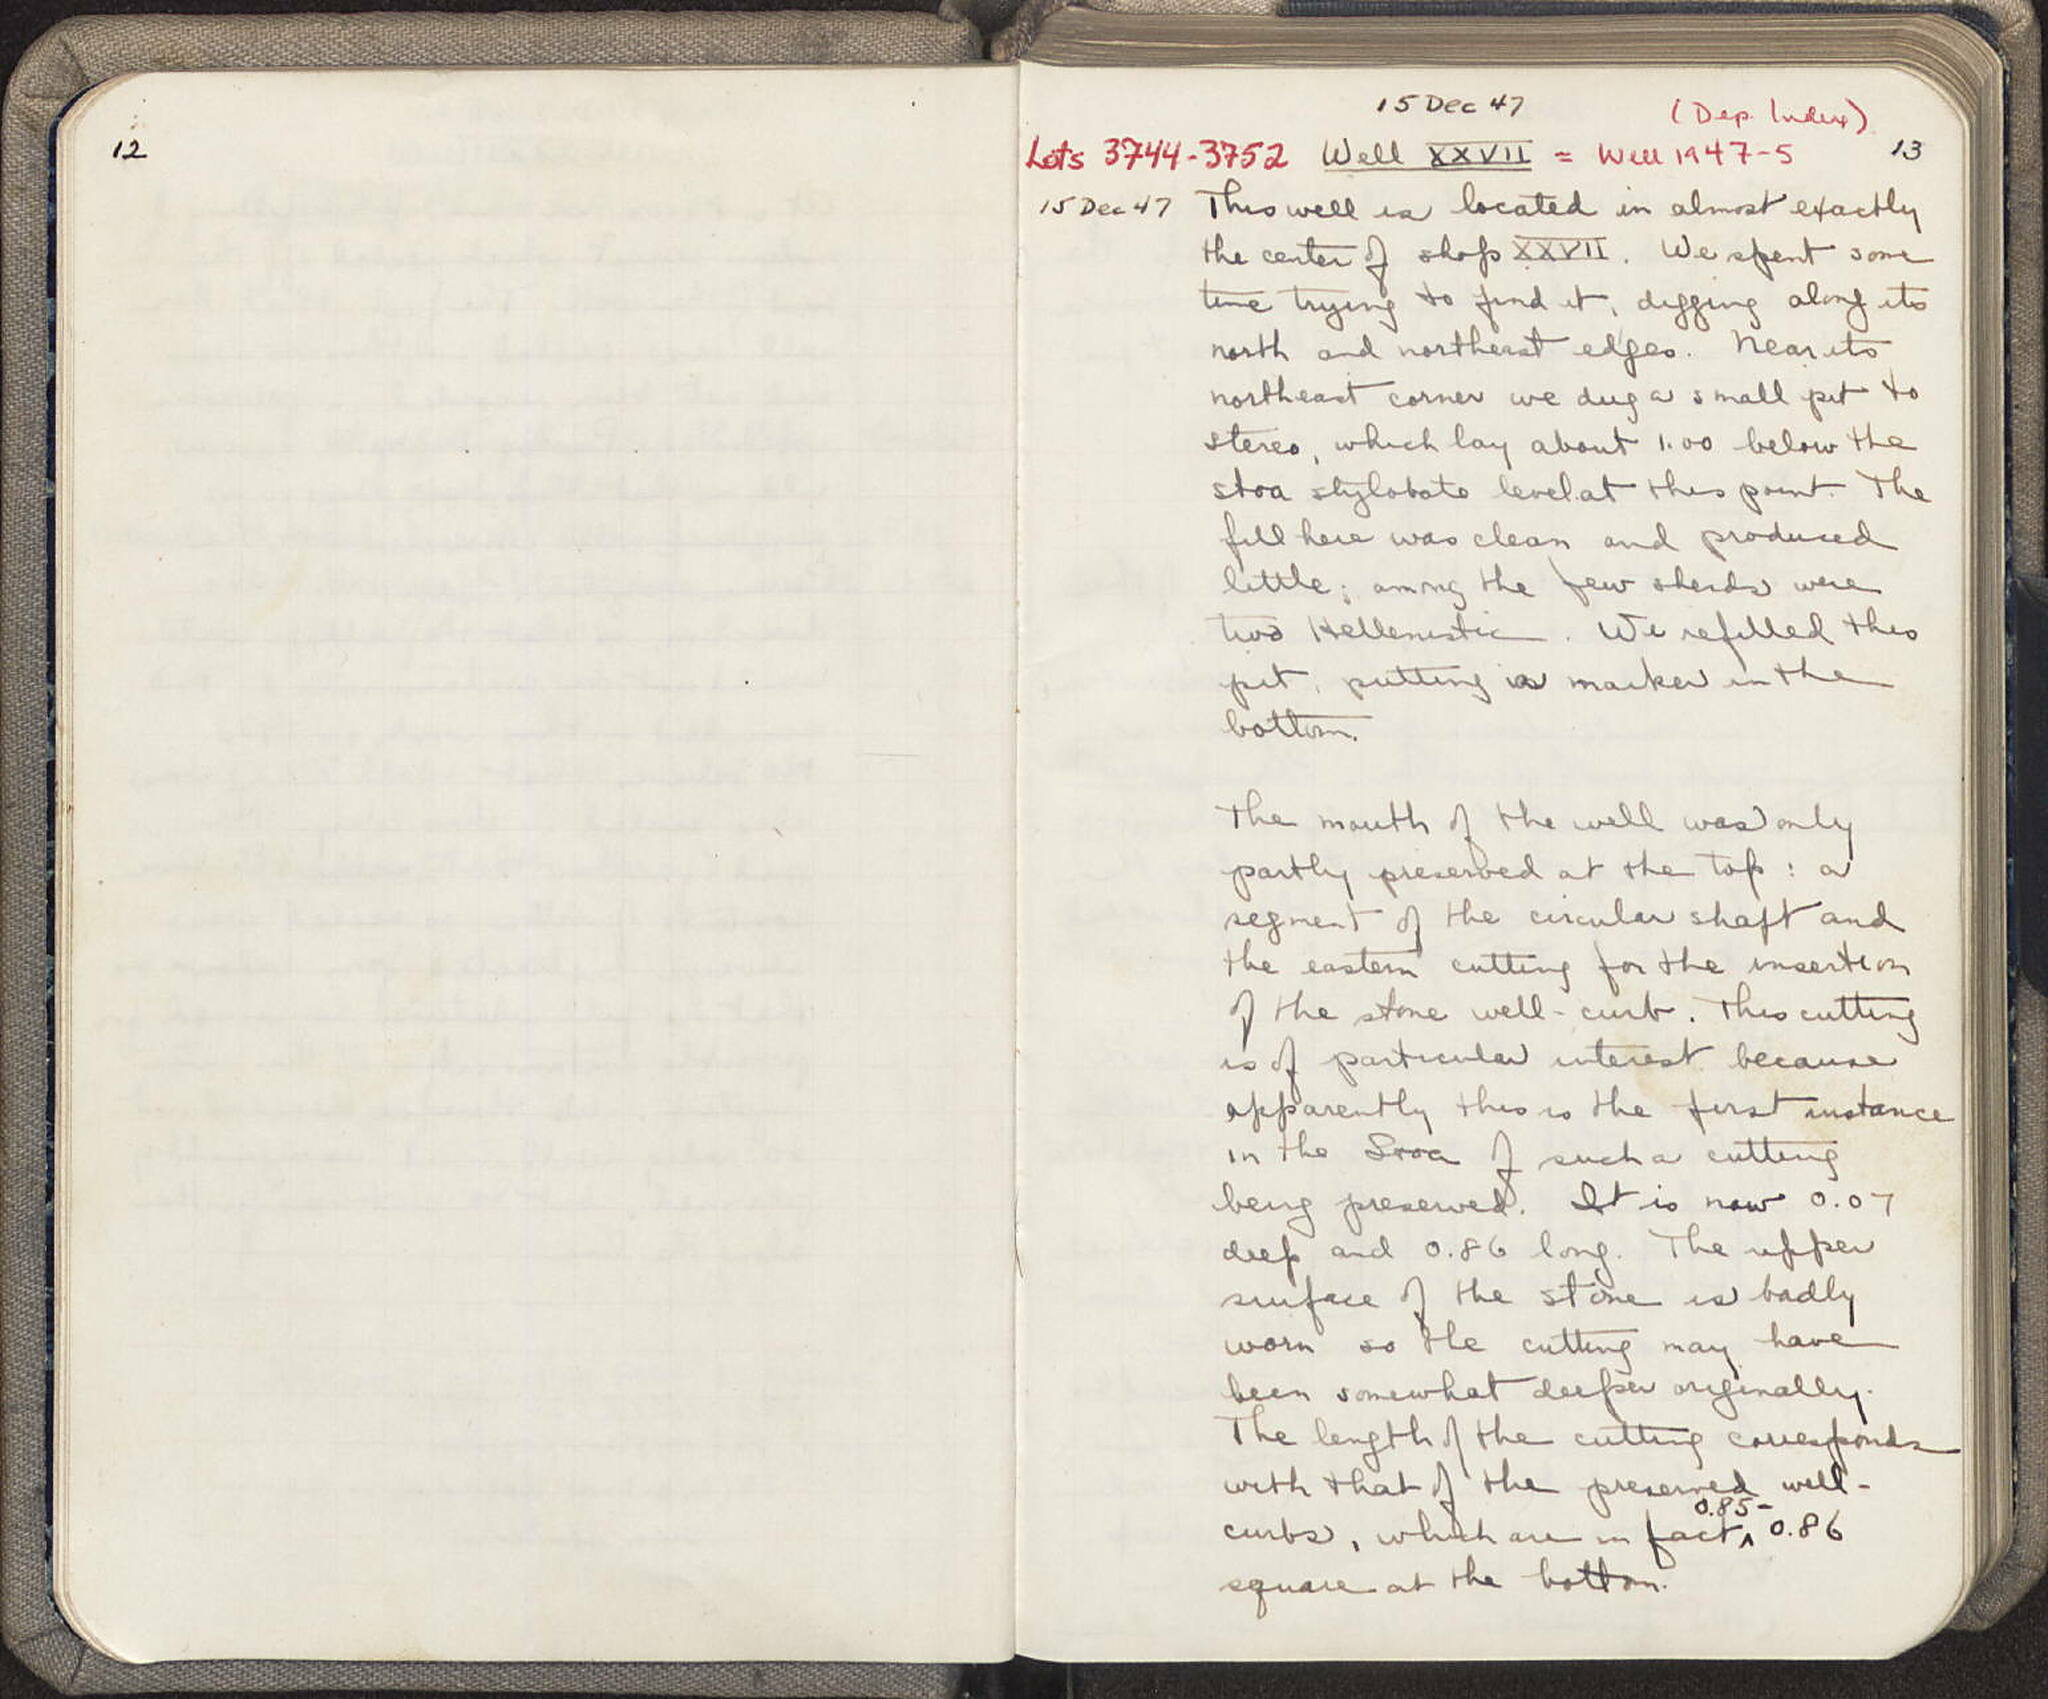 12
15 Dec 47
(Dep. Index)
Lots 3744-3752 Well XXVII = Well 1947-5 13
15 Dec 47 This well is located in almost exactly
the center of shop XXVII. We spent some
time trying to find it, digging along its
north and northeast edges. Near its
northeast corner we dug a small pit to
stereo, which lay about 1.00 below the
stoa stylobate level at this point. The
fill here was clean and produced
little; among the few sherds were
two Hellenistic. We refilled this
pit, putting a marker in the
bottom.
The mouth of the well was only
partly preserved at the top: a
segment of the circular shaft and
the eastern cutting for the insertion
of the stone well-curb. This cutting
is of particular interest because
apparently this is the first instance
in the Stoa of such a cutting
being preserved. It is now 0.07
deep and 0.86 long. The upper
surface of the stone is badly
worn so the cutting may have
been somewhat deeper originally.
The length of the cutting corresponds
with that of the preserved well-
curbs, which are in fact ^ 0.85- 0.86
square at the bottom.